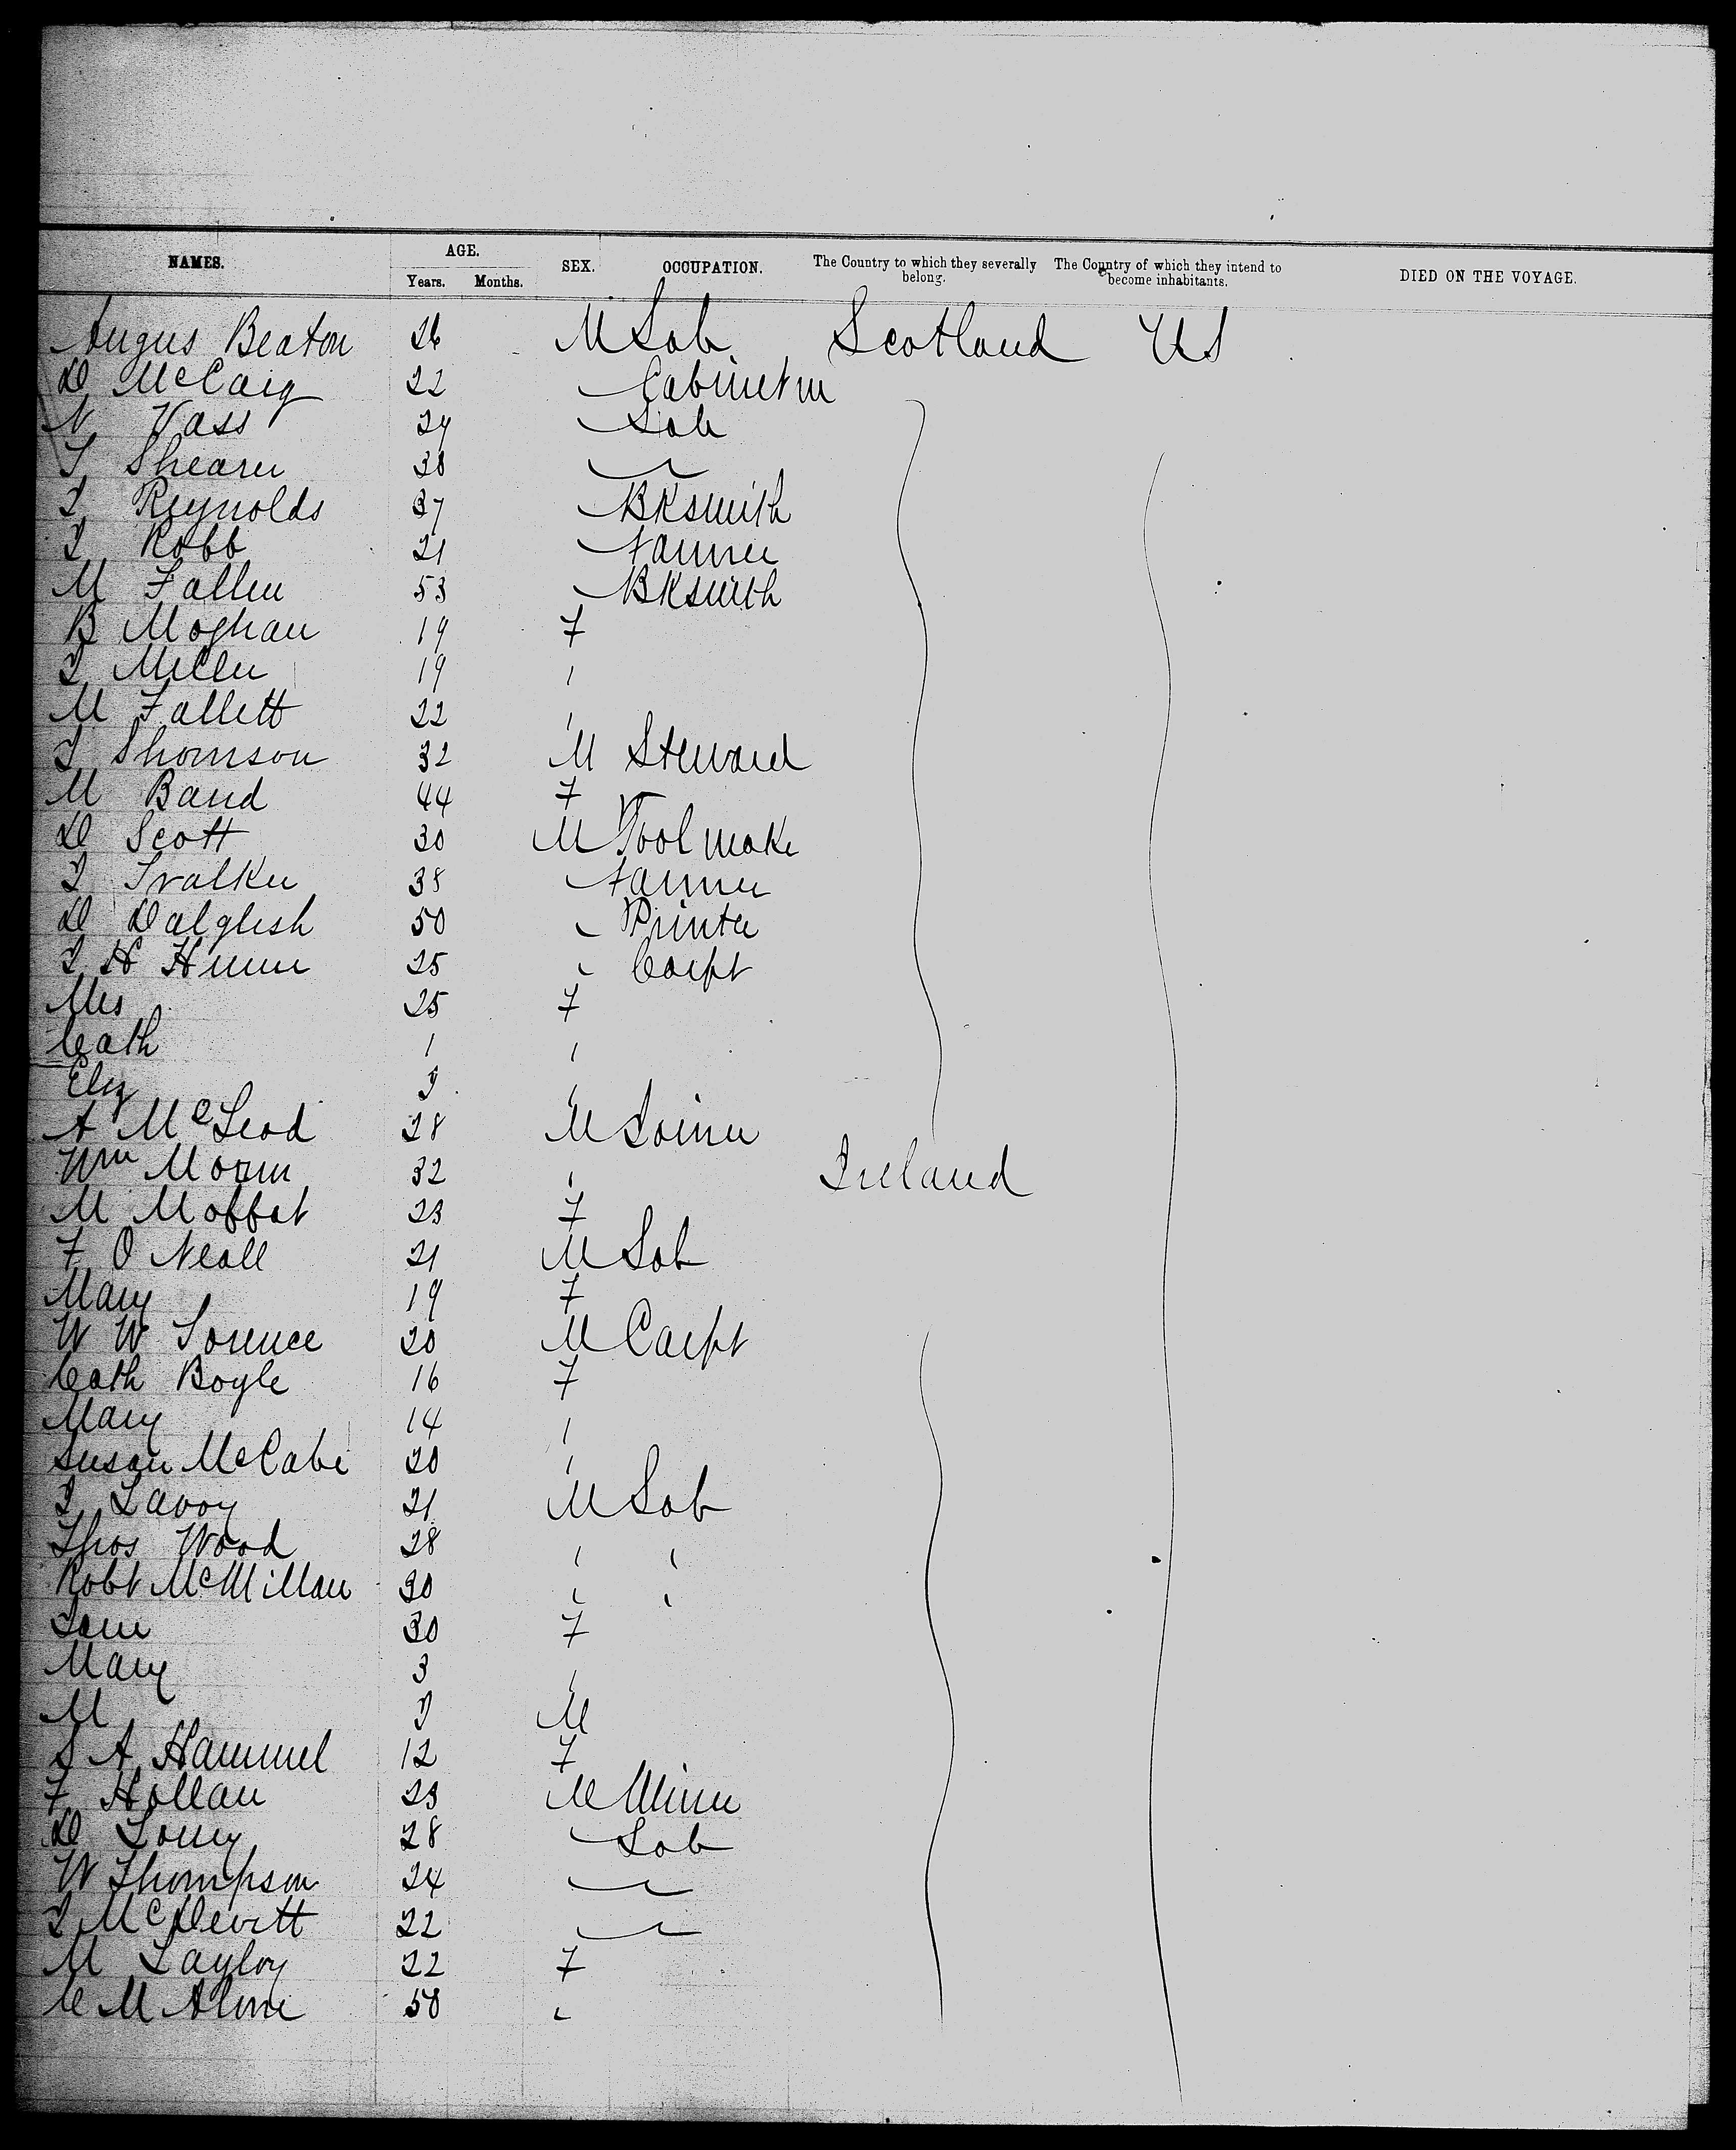 NAMES. AGE. SEX. OCCUPATION. The Country to which they severally belong. The Country of which they intend to become inhabitants. DIED ON THE VOYAGE.
Years. Months.
Angus Beaton 26 M Lab Scotland US
D McCaig 22 Cabinet m
N Vass 24 Lab
Shearer 38
J Reynolds 37 BKsmith
J Robb 21 Farmer
M Fallen 53 BKsmith
B Moghan 19 F
J Miller 19
M Fallett 22
J Thomson 32 M Steward
M Band 44 F
D Scott 30 M Tool make
J Walker 38 Farmer
D Dalglish 50 Printer
J H Hume 25 Carpt
Mrs 25 F
Cath 1
Eliz 3
A McLeod 28 M Joiner
Wm 32 Ireland
M Moffat 23 F
F O Neall 21 M Lab
Mary 19 F
W W Lorence 20 M Carpt
Cath Boyle 16 F
Mary 14
Susan McCabe 20
J Lavoy 21 M Lab
Thos Wood 28
Robt McMillan 30
Jane 30 F
Mary 3
M M
S A Hammel 12 F
F Hollan 23 M Miner
D 28 Lab
W Thompson 24
J McDevitt 22
M Taylor 22 F
C M Alone 50